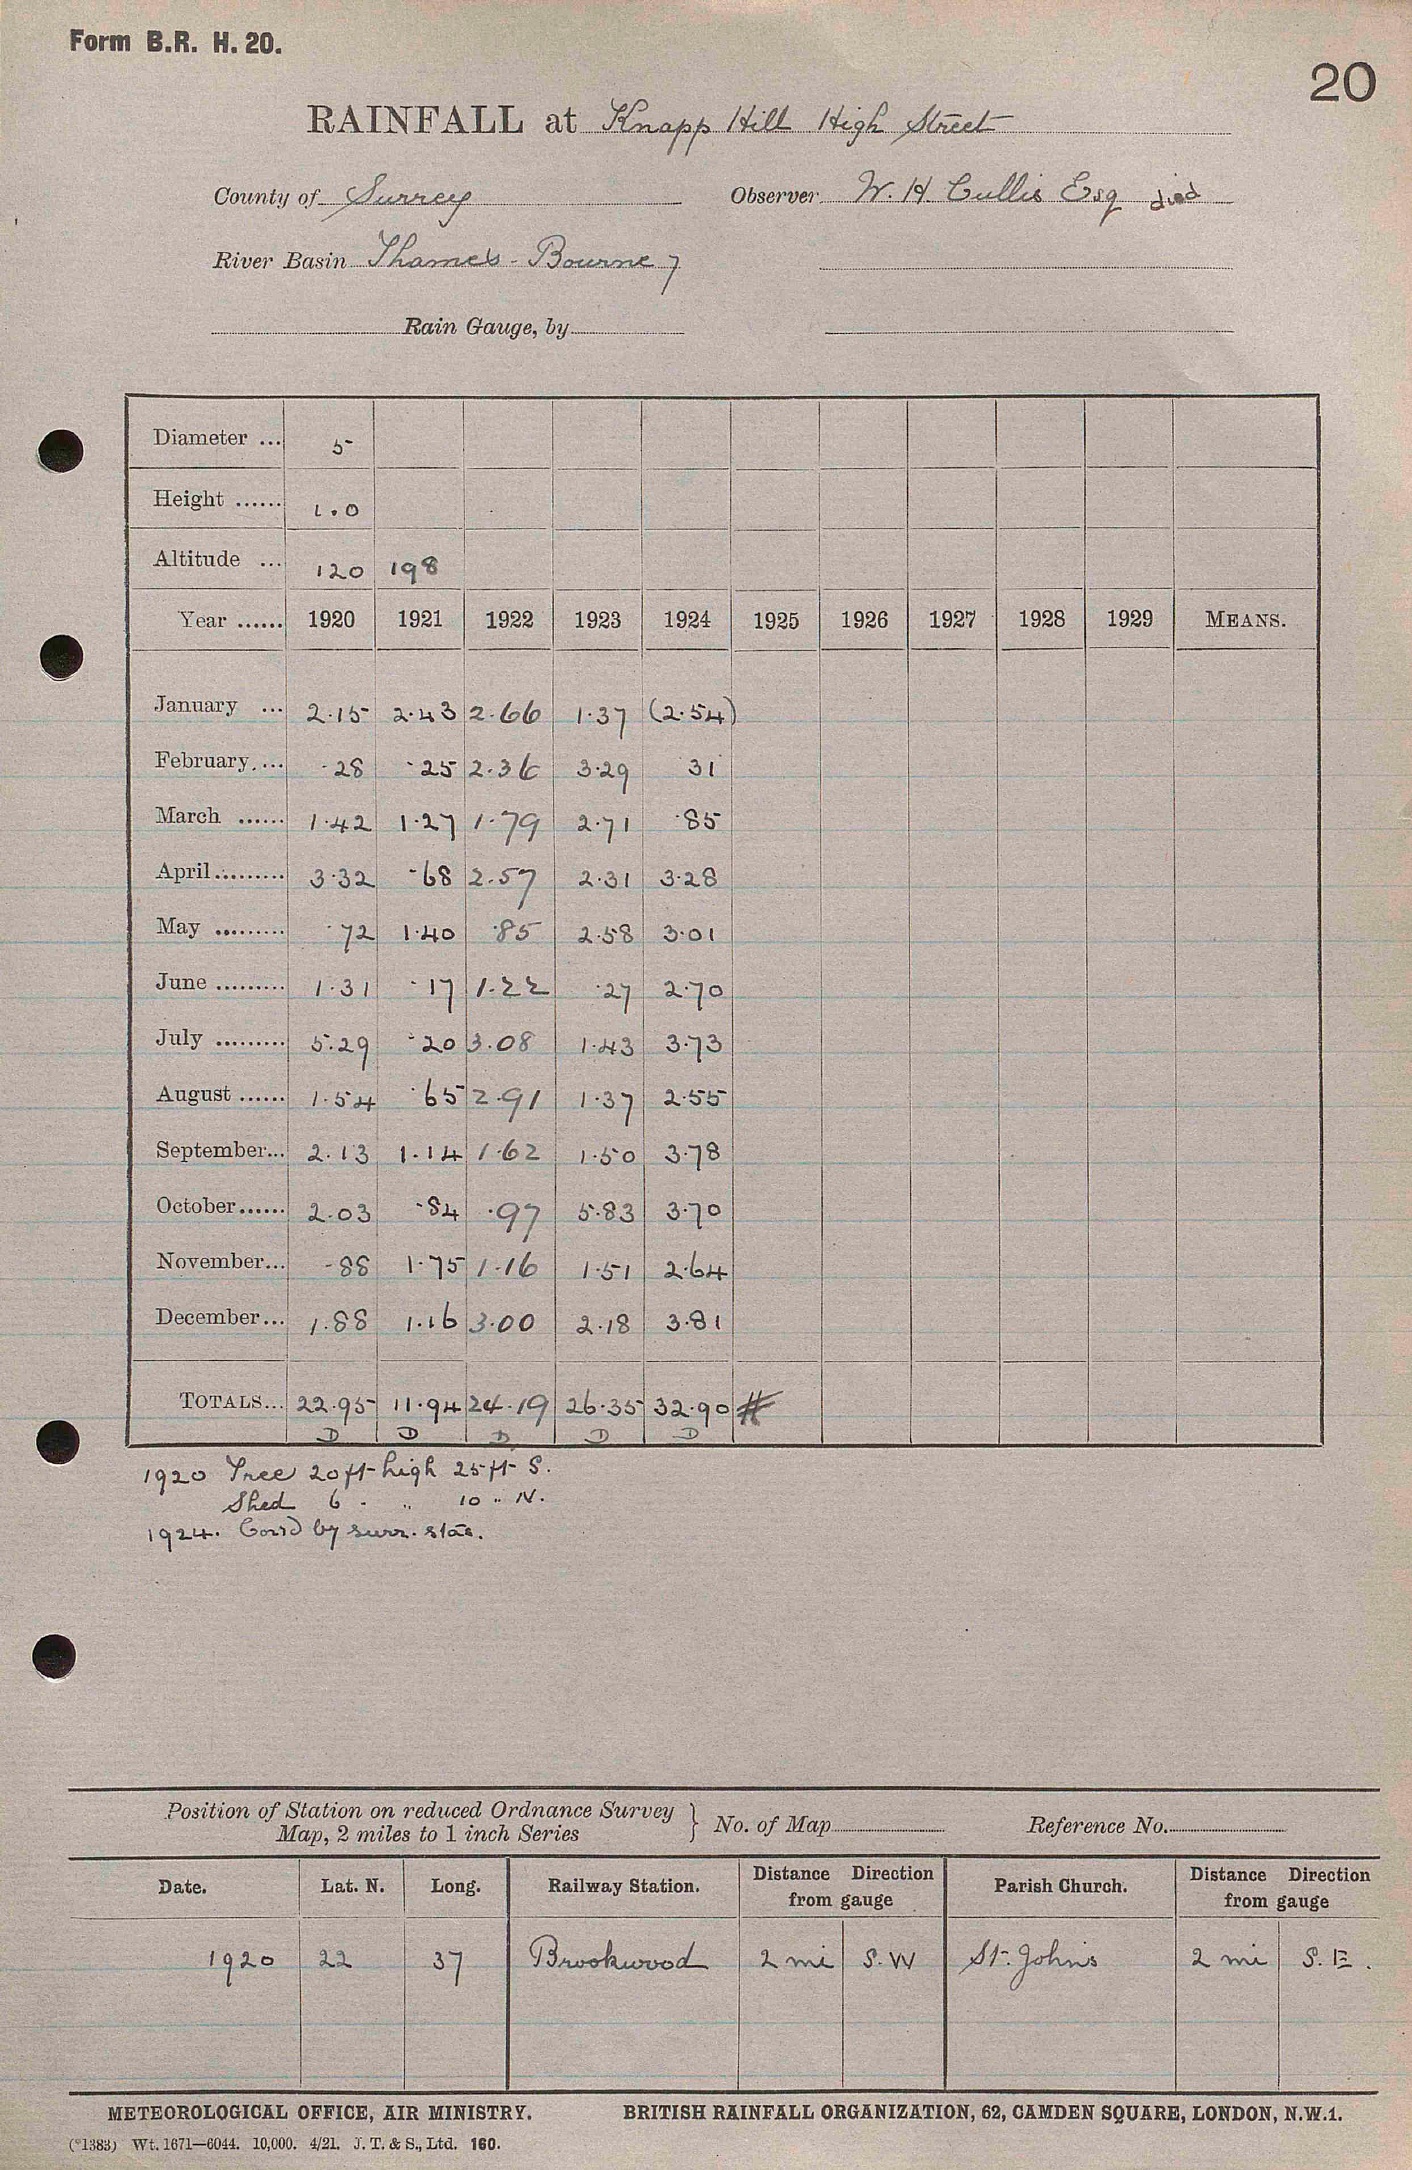 Form B.R. H. 20.
20
RAINFALL at Knapp Hill High Street
County of Surrey Observer W. H. Cullis Esq died
River Basin Thames - Bourne 7
Rain Gauge, by
Diameter ... 5
Height ...... 1.0
Altitude ... 120 198
Year ...... 1920 1921 1922 1923 1924 1925 1926 1927 1928 1929 MEANS.
January ... 2.15 2.43 2.66 1.37 (2.54)
February ... .28 .25 2.36 3.29 31
March ...... 1.42 1.27 1.79 2.71 .85
April ......... 3.32 .68 2.57 2.31 3.28
May ......... .72 1.40 .85 2.58 3.01
June ......... 1.31 .17 1.22 .27 2.70
July ......... 5.29 .20 3.08 1.43 3.73
August ...... 1.54 .65 2.91 1.37 2.55
September... 2.13 1.14 1.62 1.50 3.78
October...... 2.03 .84 .97 5.83 3.70
November... .88 1.75 1.16 1.51 2.64
December... 1.88 1.16 3.00 2.18 3.81
TOTALS... 22.95 11.94 24.19 26.35 32.90 #
D D D D D
1920 Tree 20 ft high 25 ft S.
Shed 6 - " 10 " N.
1924. Cor'd by surr. stas.
Position of Station on reduced Ordnance Survey
Map, 2 miles to 1 inch Series } No. of Map Reference No.
Date. Lat. N. Long. Railway Station. Distance Direction from gauge Parish Church. Distance Direction from gauge
1920 22 37 Brookwood 2 mi S.W St. Johns 2 mi S.E.
METEOROLOGICAL OFFICE, AIR MINISTRY. BRITISH RAINFALL ORGANIZATION, 62, CAMDEN SQUARE, LONDON, N.W.1.
(*1383) Wt. 1671—6044. 10,000. 4/21. J. T. & S., Ltd. 160.